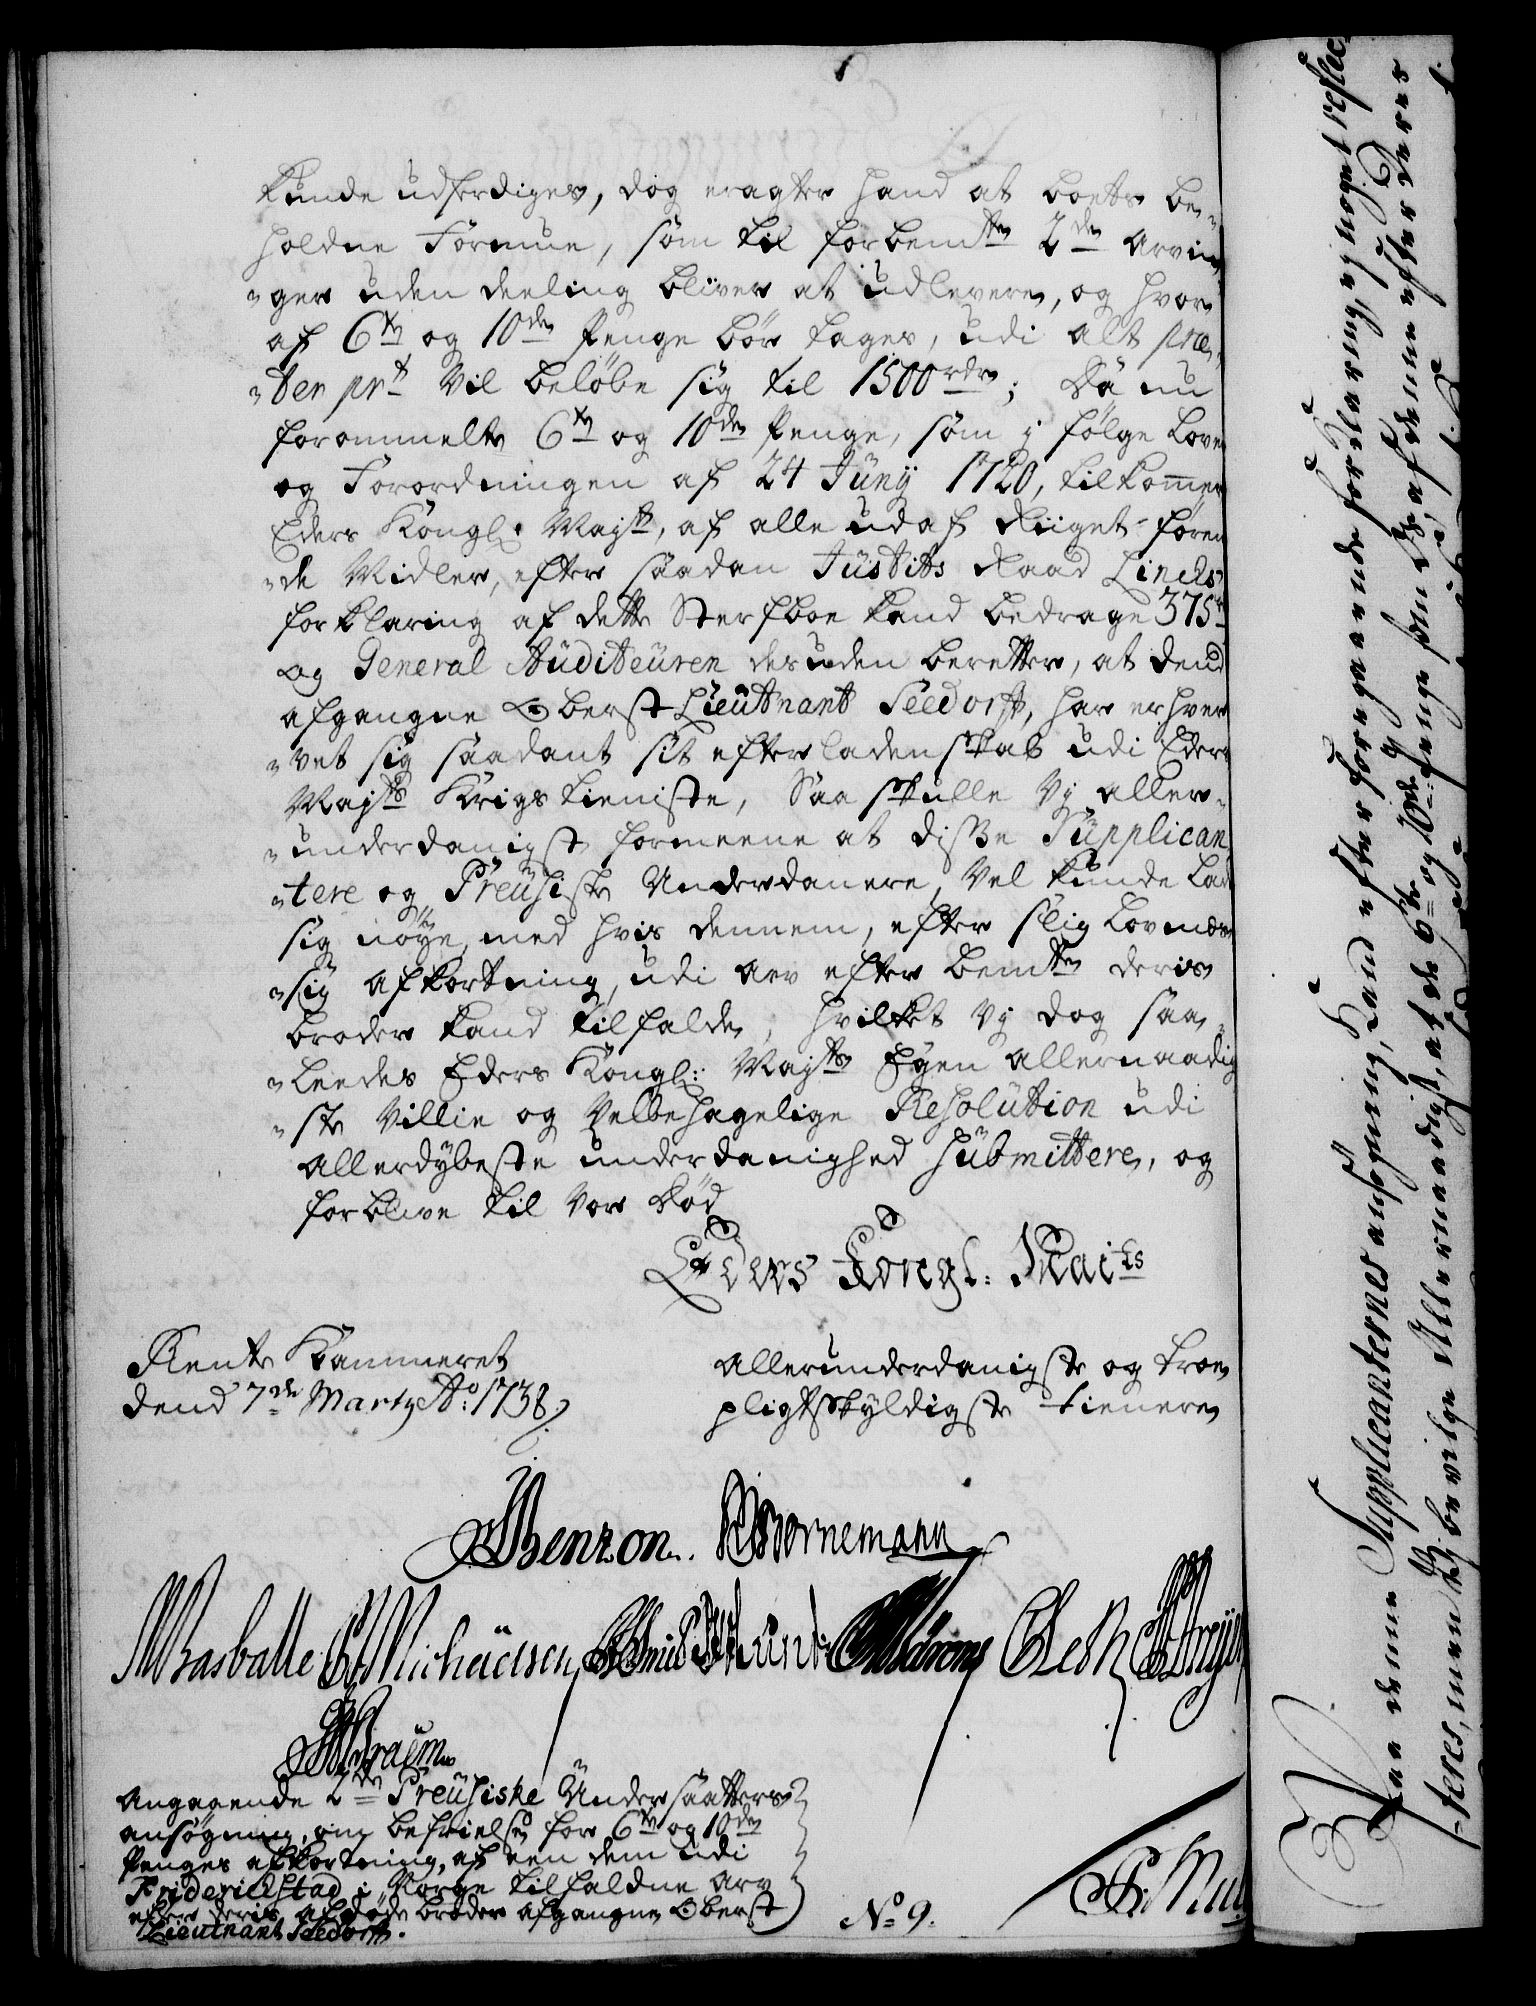 kunde udferdiges, dog eragter hand at boets be-
holdne Formue, som til forbemte 2de Arvin-
-ger uden deeling bliver at udlevere, og hvor
af 6te og 10de Penge bør tages, udi alt præ-
-ter prt vil beløbe sig til 1500 rdr; Da nu
forommelte 6te og 10de Penge, som i følge Loven
og Forordningen af 24 Junij 1720, tilkommer
Eders Kongl: Majt, af alle ud af Riiget føren-
-de Midler, efter saadan Justits Raad Lincks
forklaring af dette Sterfboe kand bedrage 375 r
og General Auditeuren desuden beretter, at dend
afgangne Oberst Lieutnant Seedorff, har erhver-
-vet sig saadant sit efterladenskab udi Eders
Majts Krigs tieniste, Saa skulle Vy aller-
-underdanigst formeene at disse Supplican-
-tere og Preusiske Underdanere, Vel kunde lade
sig nøye, med hvis dennem, efter slig Lovmæs-
-sig afkortning, udi arv efter bemte deris
broder kand tilfalde, hvilket Vy dog saa-
-leedes Eders Kongl: Majts Egen allernaadig-
-ste Villie og Velbehagelige Resolution udi
allerdybeste underdanighed submittere, og
forblive til Vor død
Eders Kongl: Maits
Rente Kammeret
dend 7de Marty Ao: 1738.
allerunderdanigste og troe
pligtskyldigste tienere
Benzon. Bornemann
Basballe Michaelsen
Braëm
Angaaende 2de Preusiske Undersaatters
ansøgning, om befrielse for 6te og 10de
Penges afkortning, af een dem udi
Friderichstad i Norge tilfaldne arv
efter deris afdøde broder afgangne Oberst
Lieutnant Seedorff.
No 9.
Paa denne Supplicanternes ansøgning, Kand efter foregaaende forklaring, ej noget reflec-
-teres, men Vy bevilge Allernaadigst, at de 6te og 10de Penge som Os af denne efter deres